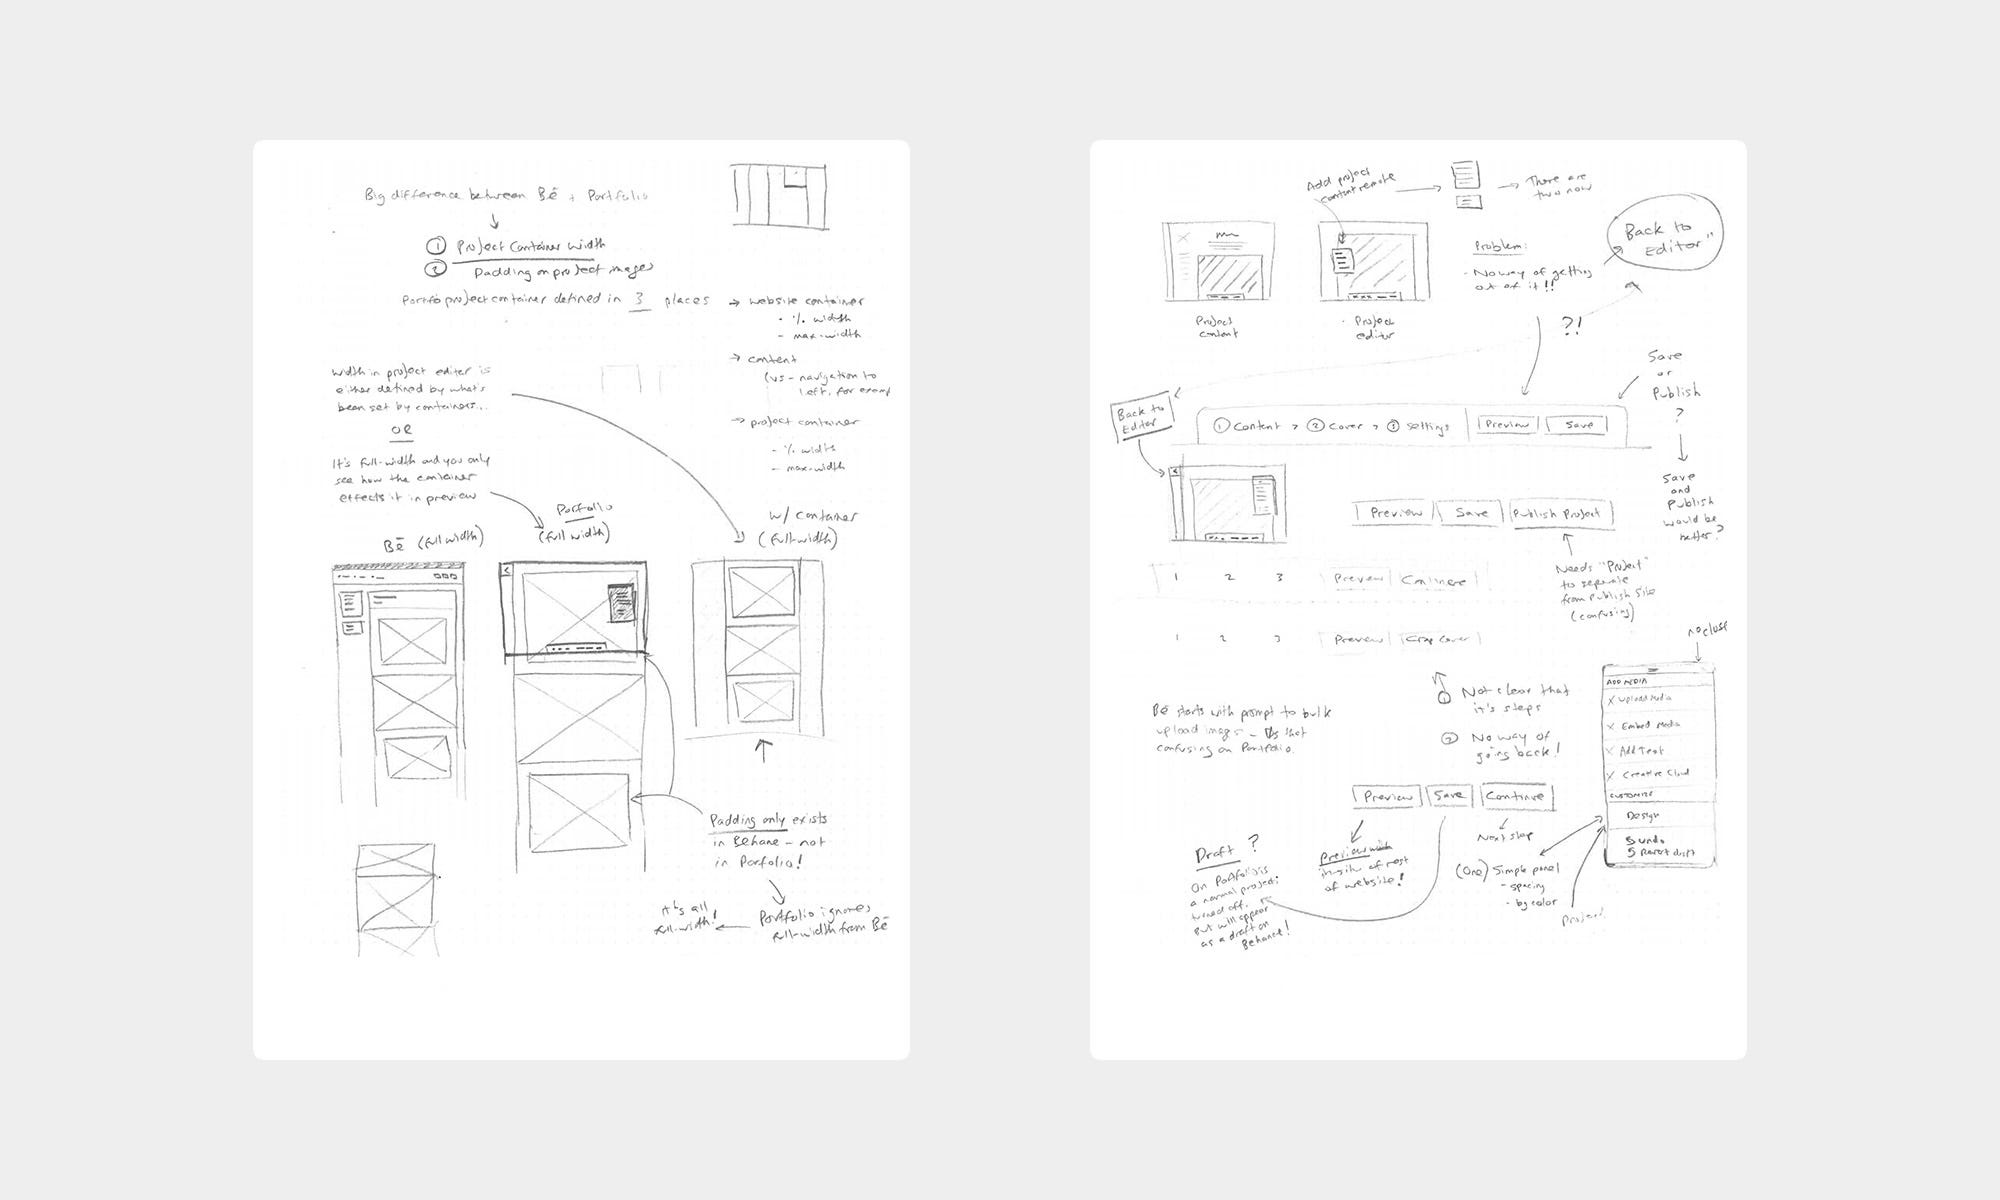 Big difference between Bē + Portfolio
① Project Container Width
② Padding on project images
Portfo project container defined in 3 places
→ website container
- % width
- max-width
→ content
(vs - navigation to
left, for exemp
→ project container
- % width
- max-width
Width in project editor is
either defined by what's
been set by containers...
OR
It's full-width and you only
see how the container
effects it in preview
Bē (full width)
Porfolio
(full width)
w/ container
(full-width)
Padding only exists
in Behane - not
in Porfolio!
Portfolio ignores
full-width from Bē
it's all
full-width!
Add project
content remote
→ There are
two now
Project
content
Project
editor
Problem:
- No way of getting
out of it!!
Back to
Editor"
?!
Save
or
Publish
?
Save
and
Publish
would be
better?
Back to
Editor
① Content > ② Cover > ③ Settings
Preview
Save
Preview
Save
Publish Project
Needs "Project"
to separate
from Publish Site
(confusing)
1 2 3 Preview Continue
1 2 3 Preview Crop Cover
① Not clear that
it's steps
② No way of
going back!
Bē starts with prompt to bulk
upload images - that
confusing on Portfolio.
Preview
Save
Continue
Next step
Preview
in-situ of rest
of website!
Draft ?
On Portfolio is
a normal project
turned off.
But will appear
as a draft on
Behance!
(One) Simple panel
- spacing
- bg color
Project
no close
ADD MEDIA
X Upload Media
X Embed Media
X Add Text
X Creative Cloud
CUSTOMIZE
Design
Undo
Revert draft